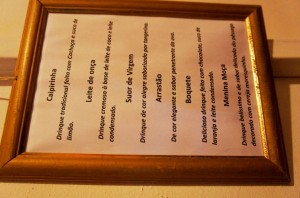 Caipirinha
Drinque tradicional feito com Cachaça e suco de
limão.
Leite de onça
Drinque cremoso à base de leite de coco e leite
condensado.
Suor de Virgem
Drinque de cor alegre saborizado por tangerina.
Arrastão
De cor elegante e sabor penetrante de uva.
Boquete
Delicioso drinque feito com chocolate, suco de
laranja e leite condensado.
Menina Moça
Drinque belíssimo e de sabor delicado de
decorado com cereja